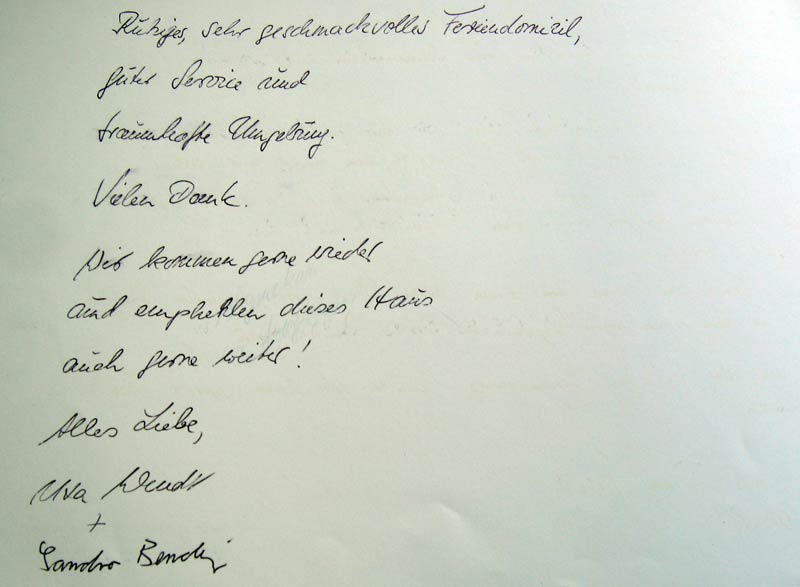 Ruhiges, sehr geschmackvolles Feriendomizil,
guter Service und
traumhafte Umgebung.
Vielen Dank.
Wir kommen gerne wieder
und empfehlen dieses Haus
auch gerne weiter!
Alles Liebe,
Wendt
+
Sandro